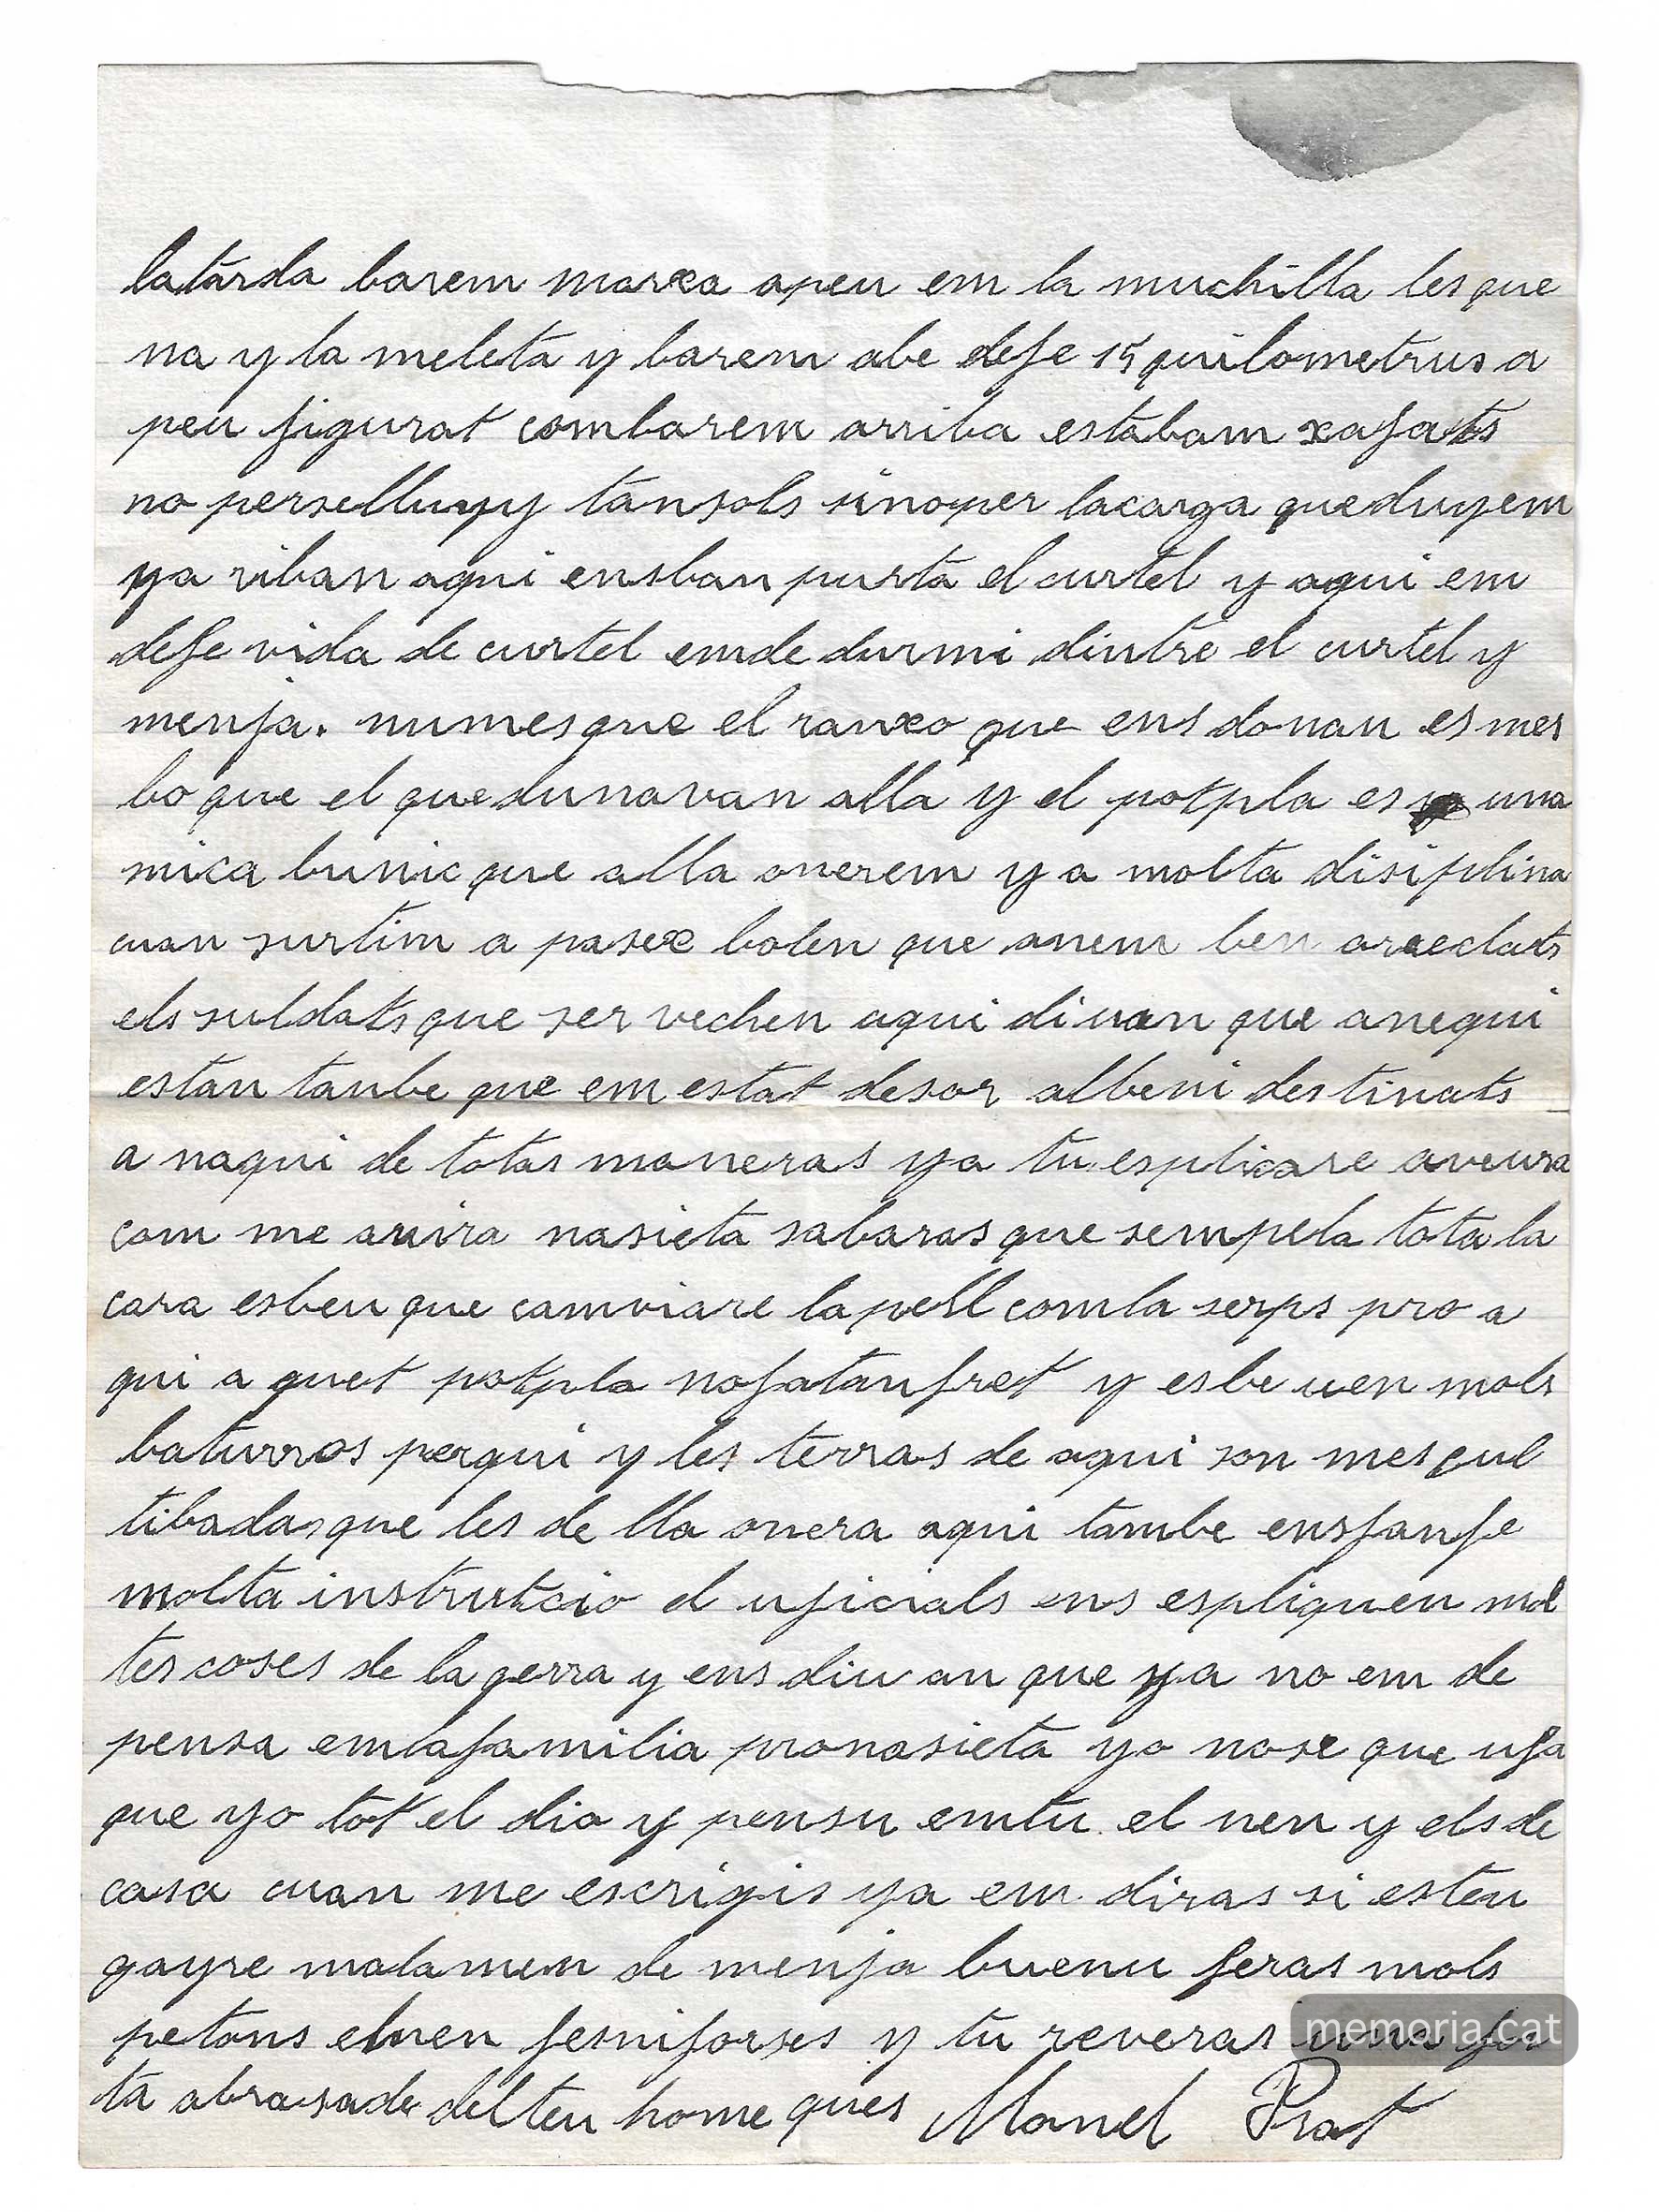 latarda barem marxa apeu em la muchilla les que
na y la meleta y barem abe defe 15 quilometrus a
peu figurat combarem arriba estabam xafats
no persellugy tansols sinoper lacarga queduyem
ya riban aqui ensban purta el curtel y aqui em
defe vida de curtel emde durmi dintre el curtel y
menja. numesque el ranxo que ens donan es mes
bo que el quedunavan alla y el potpla es una
mica bunic que alla onerem y a molta disiplina
cuan surtim a pasex bolen que anem ben arreclats
els suldats que ser vechen aqui diuan que anequi
estan tanbe que em estat desor albeni destinats
a naqui de totas maneras ya tu esplicare aveura
com me anira nasieta sabaras que sempela tota la
cara esbeu que camviare lapell comla serps pro a
qui a quet potpla nofatanfret y esbe uen mols
baturros perqui y les terras de aqui son mes cul
tibadasque les de lla onera aqui tambe ensfanfe
molta instrutcio el uficials ens espliquen mol
tes coses de la gerra y ens diu an que ya no em de
pensa emlafamilia pronasieta yo nose que ufa
que yo tot el dia y pensu emtu el nen y els de
casa cuan me escrigis ya em diras si esteu
gayre malamen de menja buenu feras mols
petons elnen fesniforses y tu reveras una for
ta abrasade delteu home ques Manel Prat
memoria.cat